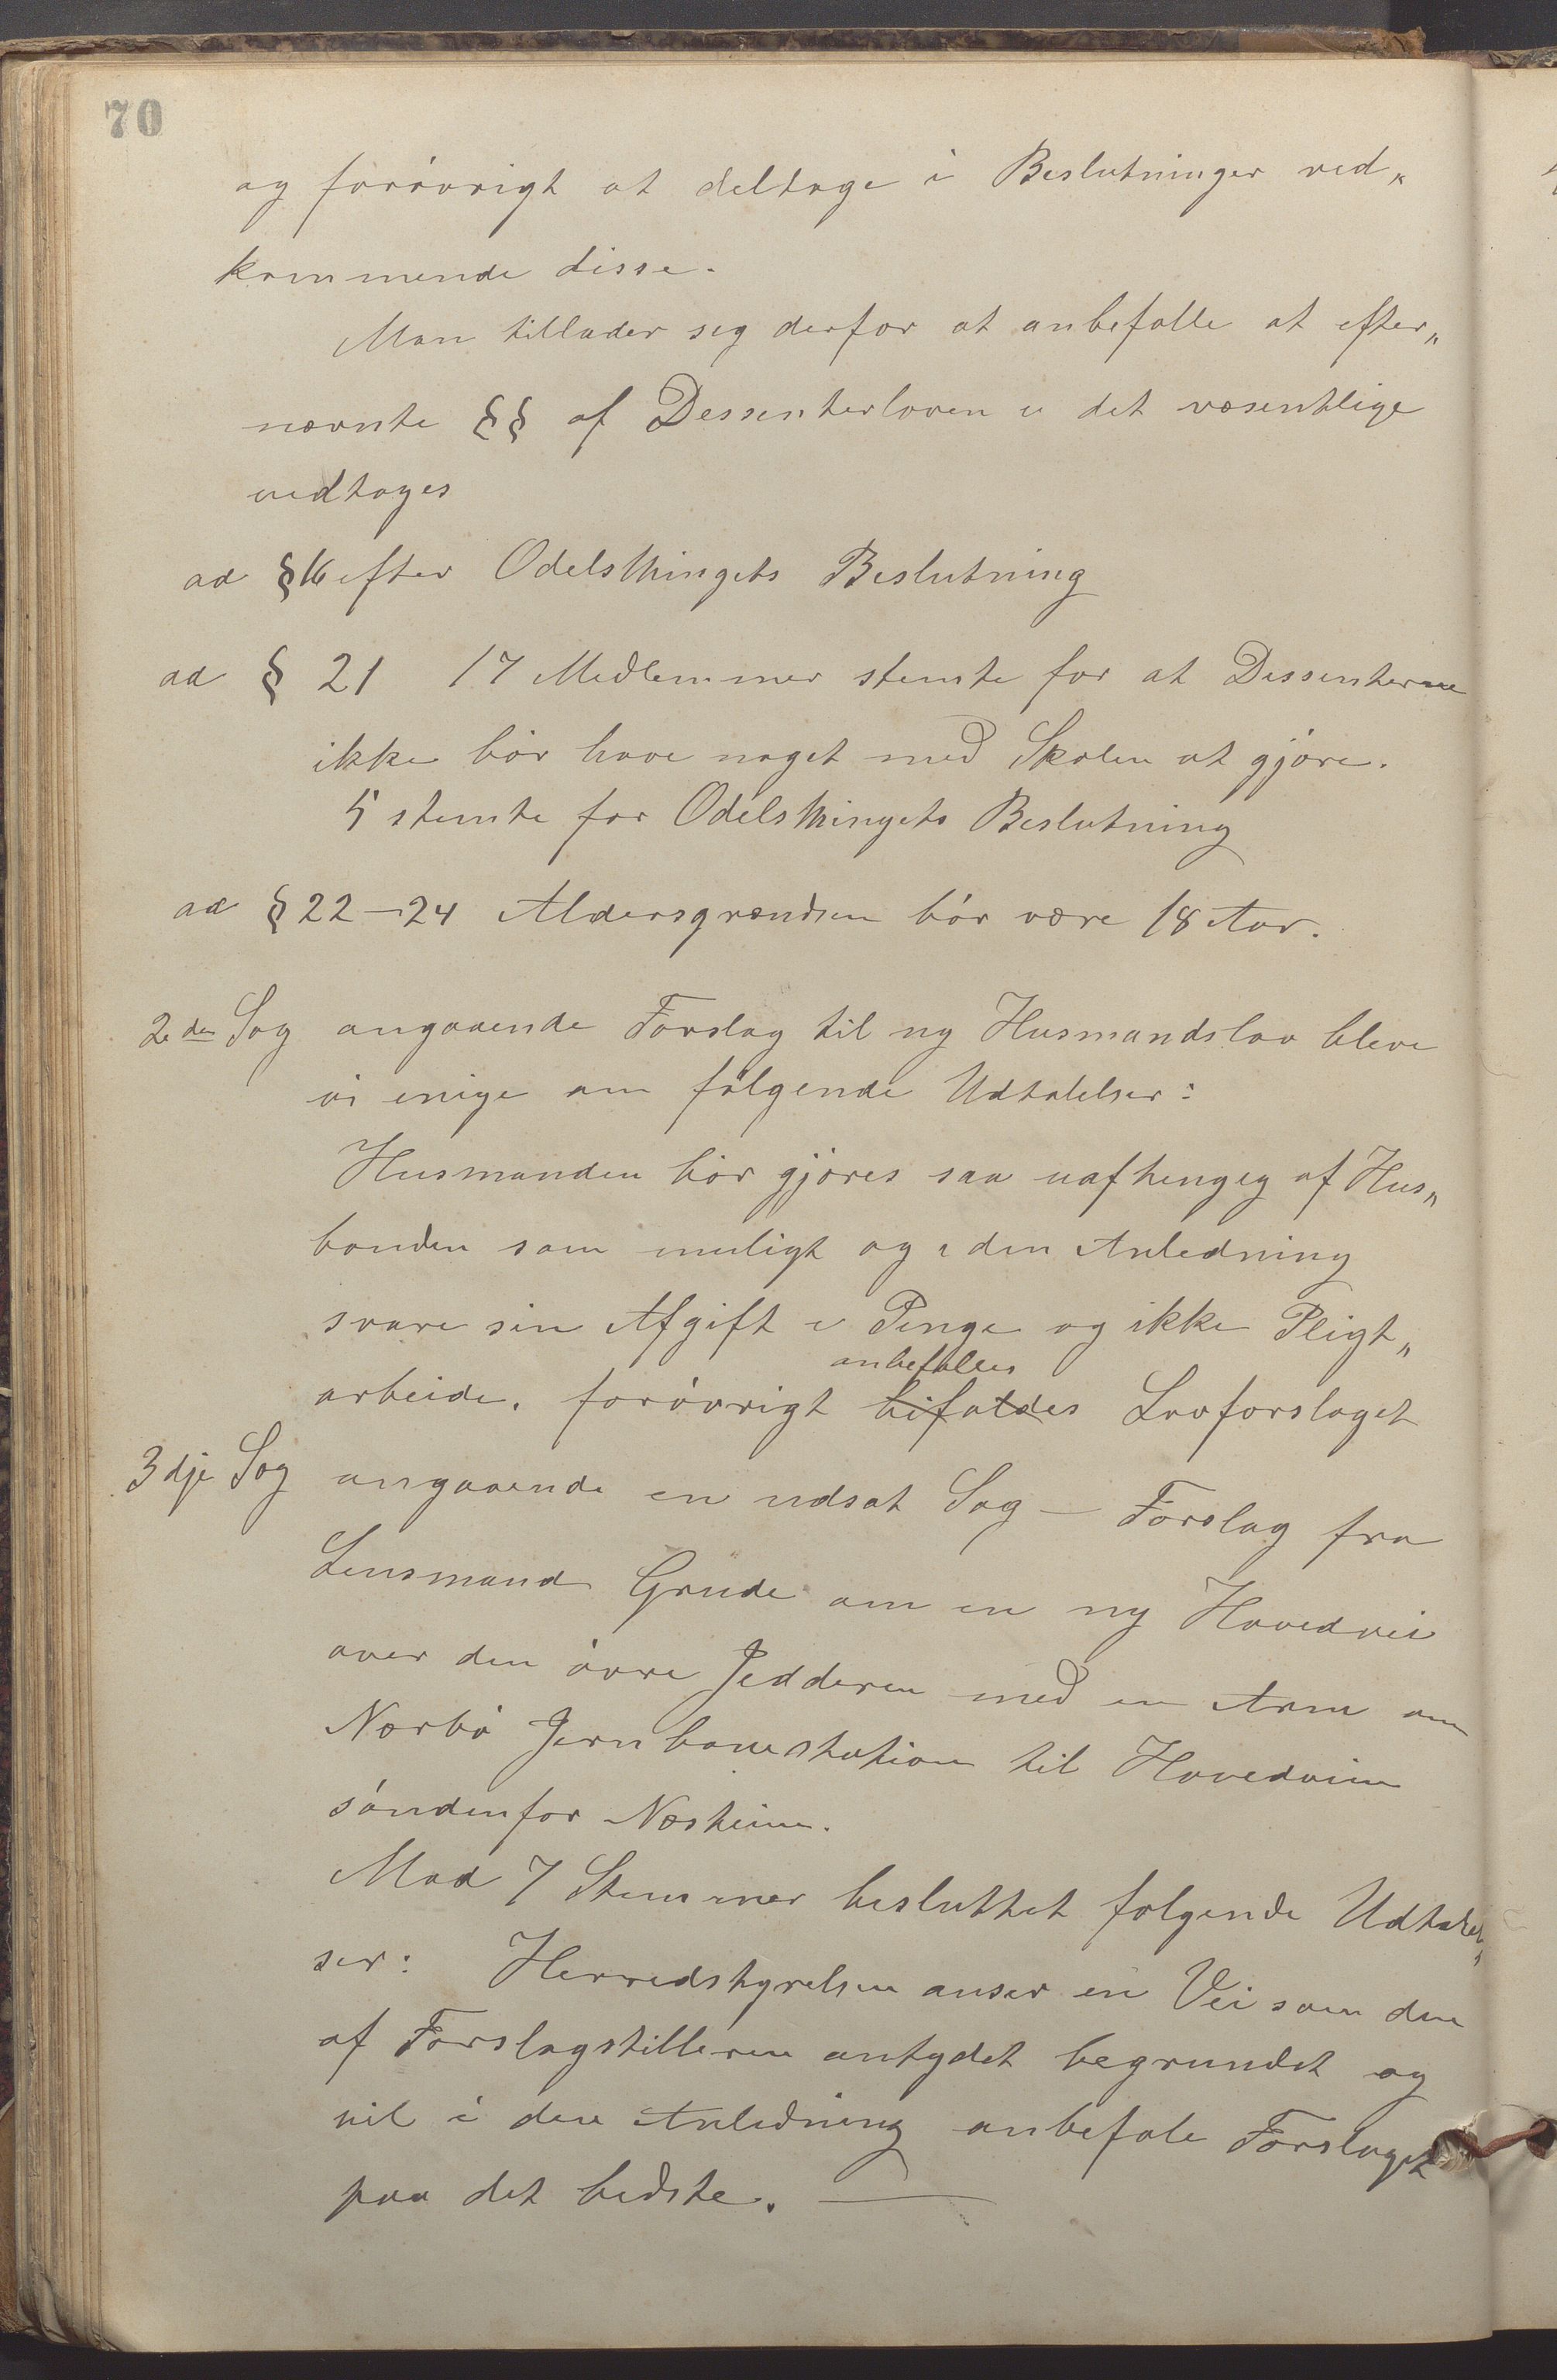 70
og forøvrigt at deltage i Beslutninger ved„
kommende disse.
Man tillader seg derfor at anbefalle at efter„
nævnte §§ af Dessenterloven i det væsentlige
vedtages
ad § 16 efter Odelsthingets Beslutning
ad § 21 17 Medlemmer stemte for at Dessenterne
ikke bør have noget med Skolen at gjøre.
5 stemte for Odelsthingets Beslutning
ad § 22–24 Aldersgrændsen bør være 18 Aar.
2den Sag angaaende Forslag til ny Husmandslov bleve
vi enige om følgende Udtalelser:
Husmanden bør gjøres saa uafhengig af Hus„
bonden som muligt og i den Anledning
svare sin Afgift i Penge og ikke Pligt„
anbefalles
arbeide. forøvrigt bifaldes Lovforslaget
3dje Sag angaaende en udsat Sag – Forslag fra
Lensmand Grude om en ny Hovedvei
over den øvre Jedderen med en Arm om
Nærbø Jernbanestation til Hovedveien
søndenfor Næsheim.
Mod 7 Stemmer besluttet følgende Udtalel„
ser: Herredstyrelsen anser en Vei som den
af Forslagstilleren antydet begrundet og
vil i den Anledning anbefale Forslaget
paa det bedste. —